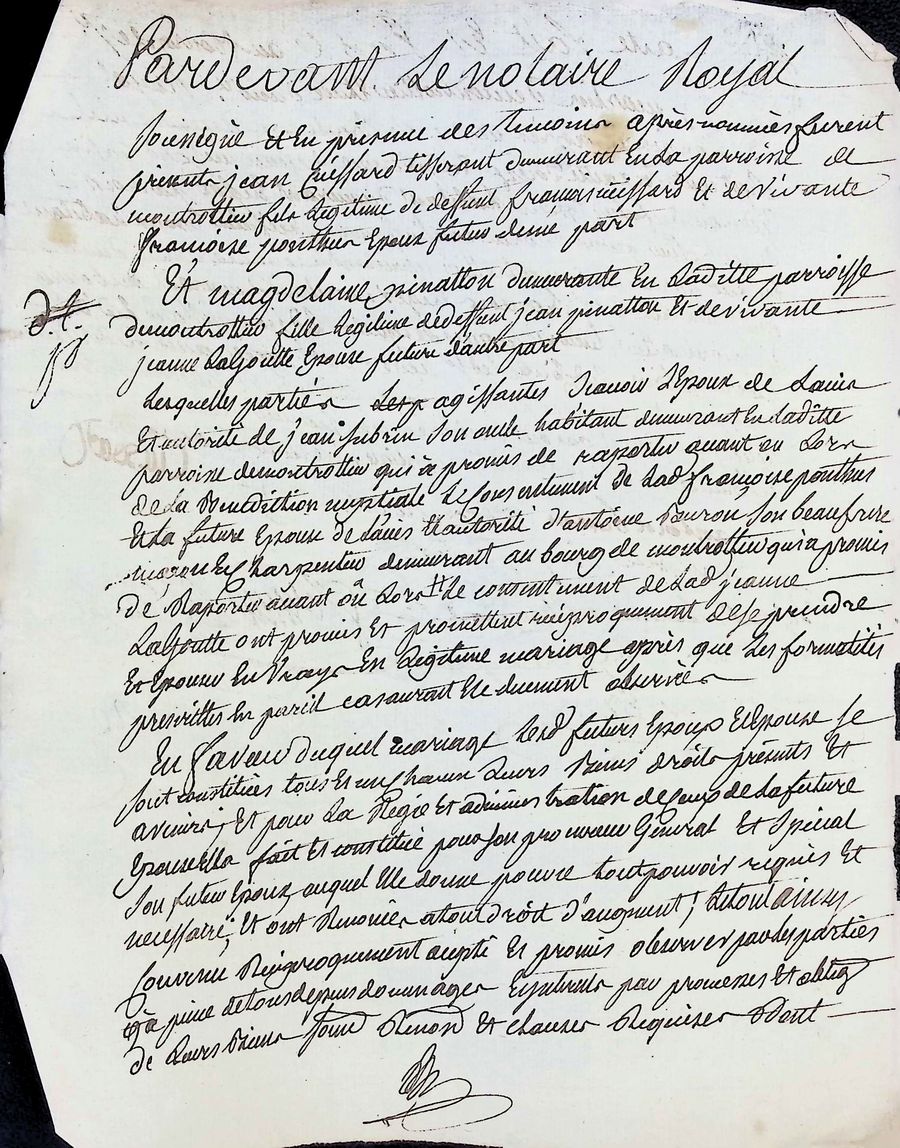 Pardevant Le notaire Royal
soussigné et En presence des temoins après nommés furent
presents jean Cuissard tisserant demeurant En La parroisse de
montrottier fils Legitime de deffunt francois cuissard Et de vivante
francoise ponthus Epoux futur d'une part
Et magdelaine pinatton demeurante En Laditte parroisse
de montrottier fille Legitime de deffunt jean pinatton Et de vivante
jeanne Lagoutte Epouse future d'autre part
Lesquelles parties agissantes scavoir L'Epoux de L'avis
Et autorité de jean subrin son oncle habitant demeurant En Laditte
parroisse de montrottier qui a promis de raporter avant ou Lors
de La Benediction nuptiale Le Consentement de Lad francoise ponthus
Et La future Epouse de L'avis Et autorité d'antoine son beaufrere
maçon Et Charpentier demeurant au bourg de montrottier qui a promis
de Raporter avant ou Lors Le consentement de Lad jeanne
Lagoutte ont promis Et promettent reciproquement de se prendre
Et Epouser En Vray Et Legitime mariage après que Les formalités
prescrittes En pareil cas auront Eté duement observées
En faveur duquel mariage Lesd futurs Epoux Et Epouse se
sont constitués tous Et un Chacun Leurs Biens droits présents Et
avenirs, Et pour La Regie Et administration de Ceux de La future
Epouse Ella fait Et constitué pour son procureur Général Et Spécial
son futur Epoux, auquel Elle donne pouvoir tout pouvoir requis Et
necessaire; Et ont Renoncés a tout droit d'augment; Le tout ainsy
Convenu Reciproquement accepté Et promis observer par Les parties
a peine de tous depens dommages interests par promesses Et oblig
de Leurs Biens soum Renon et clauses Requises Dont